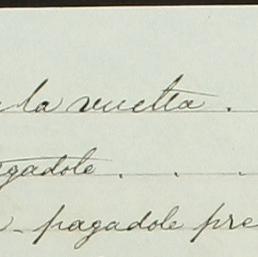 la vuelta .
gadole . . .
pagadole pre